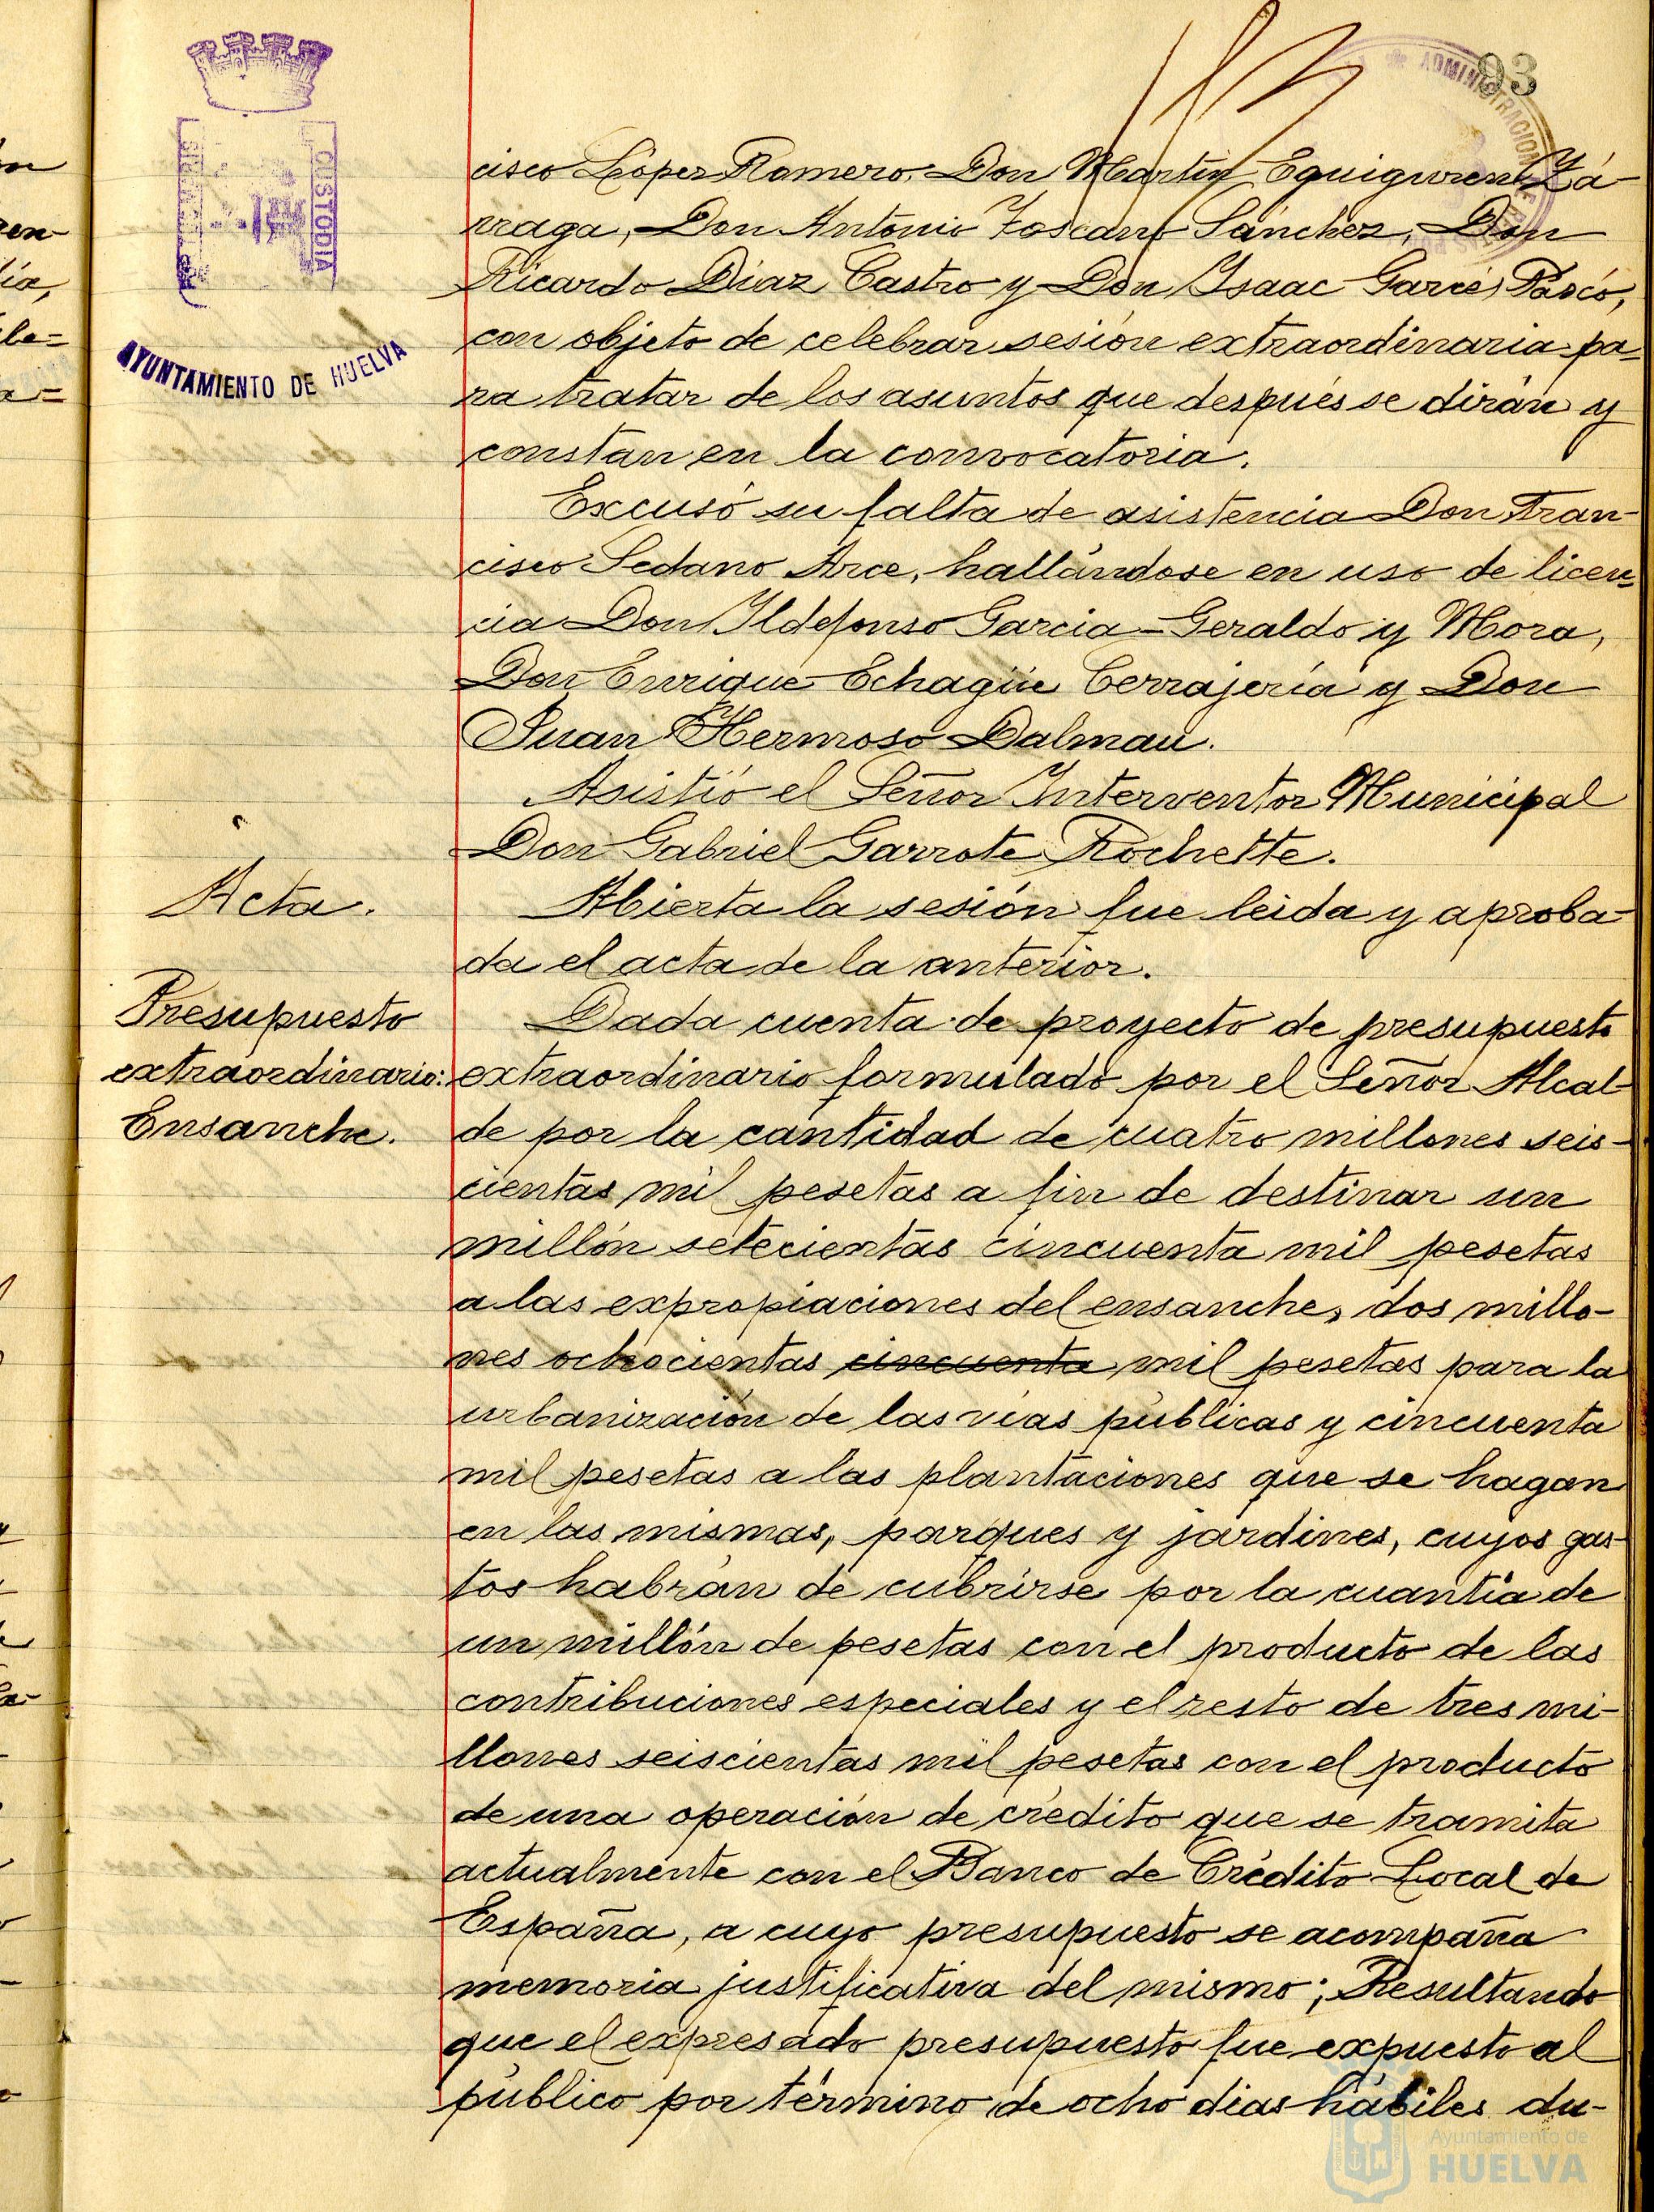 93
ADMINISTRACION DE
CUSTODIA
AYUNTAMIENTO DE HUELVA
cisco López Romero, Don Martín Eguiguren Zá-
rraga, Don Antonio Toscano Sánchez, Don
Ricardo Díaz Castro y Don Isaac Garcés Pascó,
con objeto de celebrar sesión extraordinaria pa-
ra tratar de los asuntos que después se dirán y
constan en la convocatoria.
Excusó su falta de asistencia Don Fran-
cisco Sedano Arce, hallándose en uso de licen-
cia Don Ildefonso Garcia-Geraldo y Mora,
Don Enrique Echagüe Cerrajería y Don
Juan Hermoso Dalmau.
Asistió el Señor Interventor Municipal
Don Gabriel Garrote Rochette.
Acta.
Abierta la sesión fue leida y aproba-
da el acta de la anterior.
Presupuesto
extraordinario:
Ensanche.
Dada cuenta de proyecto de presupuesto
extraordinario formulado por el Señor Alcal-
de por la cantidad de cuatro millones seis-
cientas mil pesetas a fin de destinar un
millón setecientas cincuenta mil pesetas
a las expropiaciones del ensanche, dos millo-
nes ochocientas cincuenta mil pesetas para la
urbanización de las vías públicas y cincuenta
mil pesetas a las plantaciones que se hagan
en las mismas, parques y jardines, cuyos gas-
tos habrán de cubrirse por la cuantía de
un millón de pesetas con el producto de las
contribuciones especiales y el resto de tres mi-
llones seiscientas mil pesetas con el producto
de una operación de crédito que se tramita
actualmente con el Banco de Crédito Local de
España, a cuyo presupuesto se acompaña
memoria justificativa del mismo; Resultando
que el expresado presupuesto fue expuesto al
público por término de ocho dias hábiles du-
Ayuntamiento de
HUELVA